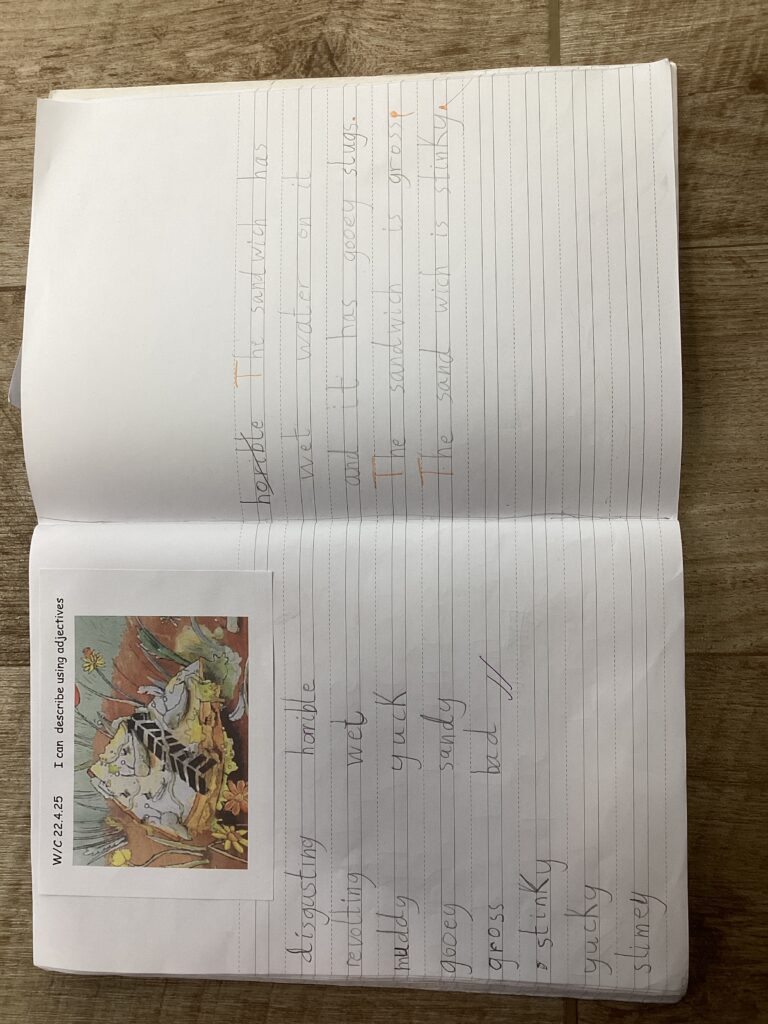 W/C 22.4.25 I can describe using adjectives
disgusting horrible
revolting wet
muddy yuck
gooey sandy
gross bad
stinky
yucky
slimey
horible The sandwich has
wet water on it
and it has gooey slugs.
The sandwich is gross.
The sand wich is stinky.